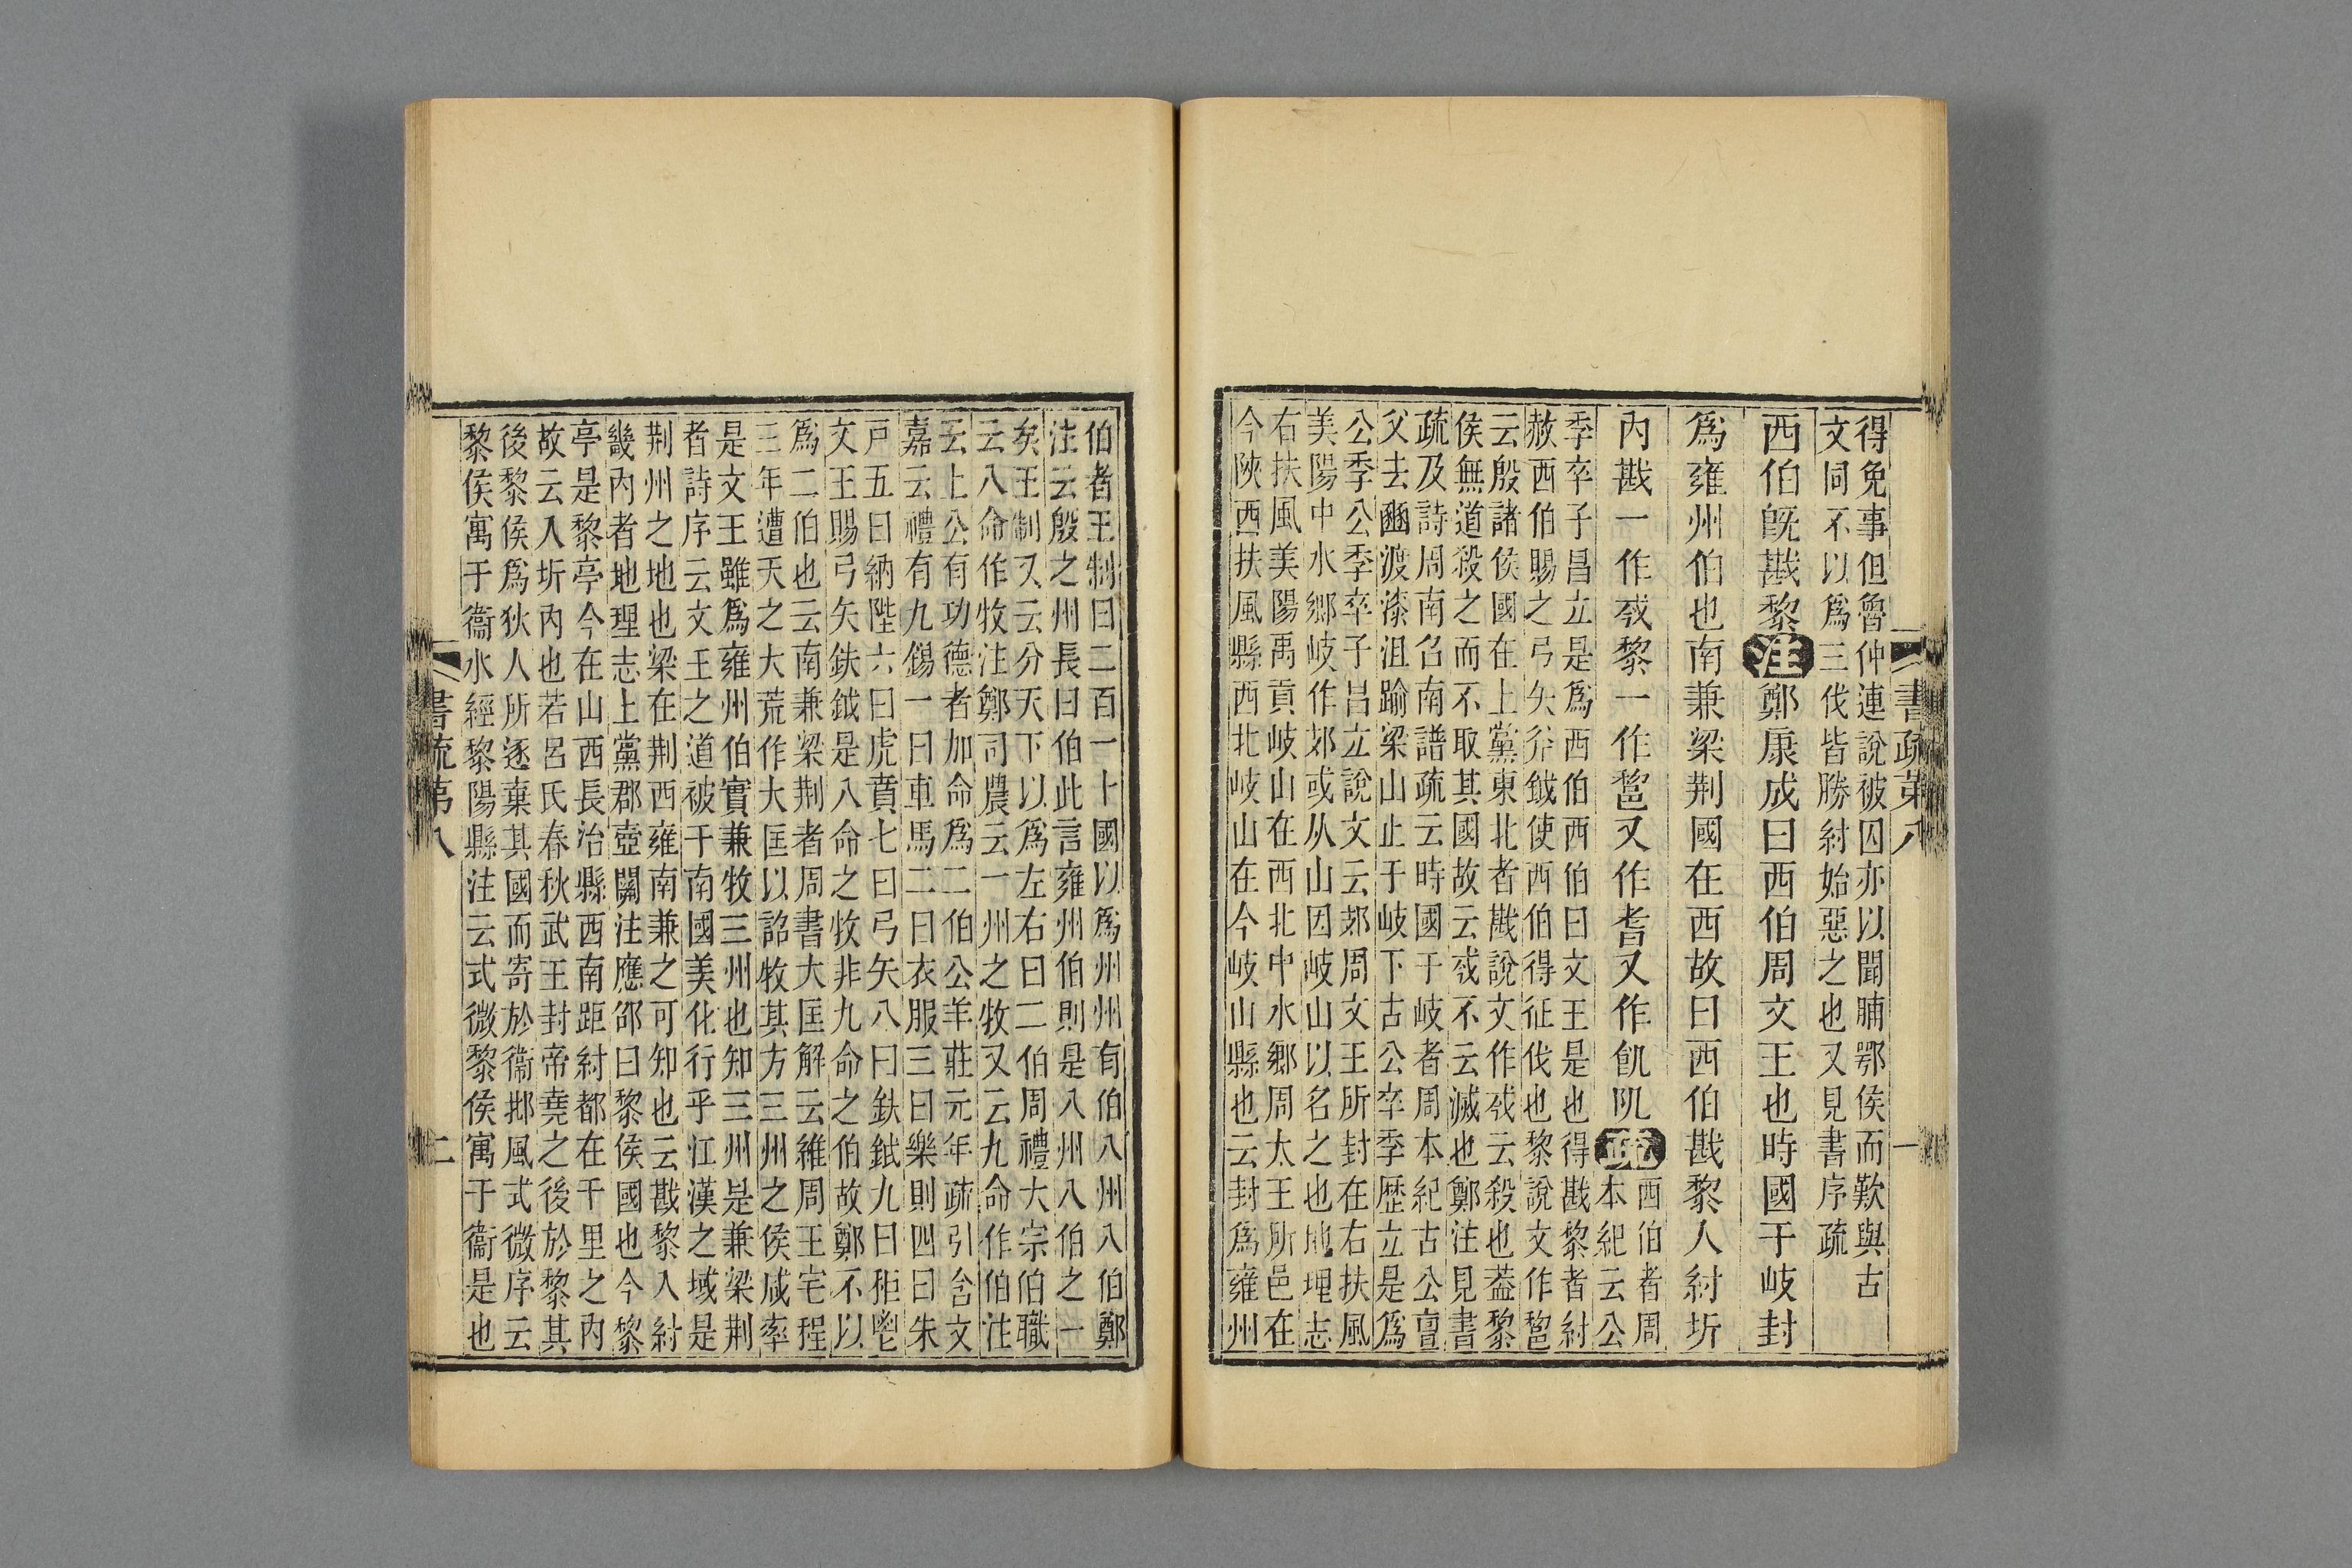 書疏第八
一
得免事但魯仲連說被囚亦以聞脯鄂侯而歎與古
文同不以爲三伐皆勝紂始惡之也又見書序疏
西伯旣戡黎注鄭康成曰西伯周文王也時國于岐封
爲雍州伯也南兼梁荆國在西故曰西伯戡黎人紂圻
內戡一作𢦟黎一作𨛫又作耆又作飢阢疏
西伯者周
本紀云公
季卒子昌立是爲西伯西伯曰文王是也得戡黎者紂
赦西伯賜之弓矢斧鉞使西伯得征伐也黎說文作𨛫
云殷諸侯國在上黨東北者戡說文作𢦟云殺也葢黎
侯無道殺之而不取其國故云𢦟不云滅也鄭注見書
疏及詩周南召南譜疏云時國于岐者周本紀古公亶
父去豳渡漆沮踰梁山止于岐下古公卒季歴立是爲
公季公季卒子昌立說文云郊周文王所封在右扶風
美陽中水鄉岐作郊或从山因岐山以名之也地理志
右扶風美陽禹貢岐山在西北中水鄉周太王所邑在
今陝西扶風縣西北岐山在今岐山縣也云封爲雍州
伯者王制曰二百一十國以爲州州有伯八州八伯鄭
注云殷之州長曰伯此言雍州伯則是八州八伯之一
矣王制又云分天下以爲左右曰二伯周禮大宗伯職
云八命作牧注鄭司農云一州之牧又云九命作伯注
云上公有功德者加命爲二伯公羊莊元年疏引含文
嘉云禮有九錫一曰車馬二曰衣服三曰樂則四曰朱
戸五曰納陛六曰虎賁七曰弓矢八曰鈇鉞九曰秬鬯
文王賜弓矢鈇鉞是八命之牧非九命之伯故鄭不以
爲二伯也云南兼梁荆者周書大匡解云維周王宅程
三年遭天之大荒作大匡以詔牧其方三州之侯咸率
是文王雖爲雍州伯實兼牧三州也知三州是兼梁荆
者詩序云文王之道被于南國美化行乎江漢之域是
荆州之地也梁在荆西雍南兼之可知也云戡黎入紂
畿內者地理志上黨郡壺關注應邵曰黎侯國也今黎
亭是黎亭今在山西長治縣西南距紂都在千里之內
故云入圻內也若呂氏春秋武王封帝堯之後於黎其
後黎侯爲狄人所逐棄其國而寄於衞邶風式微序云
黎侯寓于衞水經黎陽縣注云式微黎侯寓于衞是也
書疏第八
二